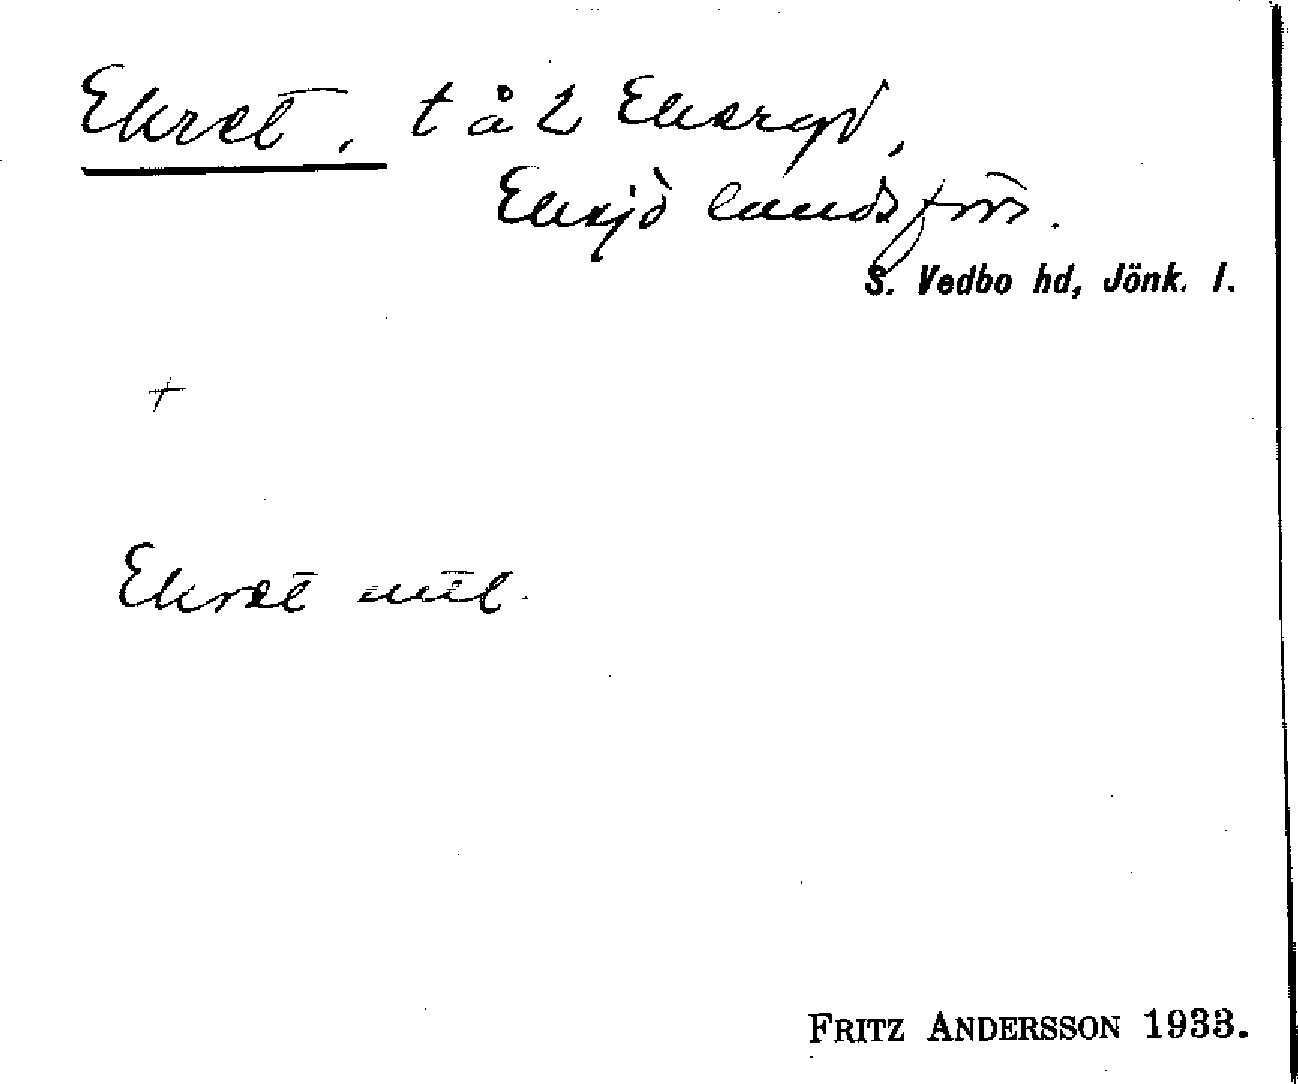 Ekret, t å 2 Ekeryd,
Eksjö landsförs.
S. Vedbo hd, Jönk. l.
+
Ekret
FRITZ ANDERSSON 1933.